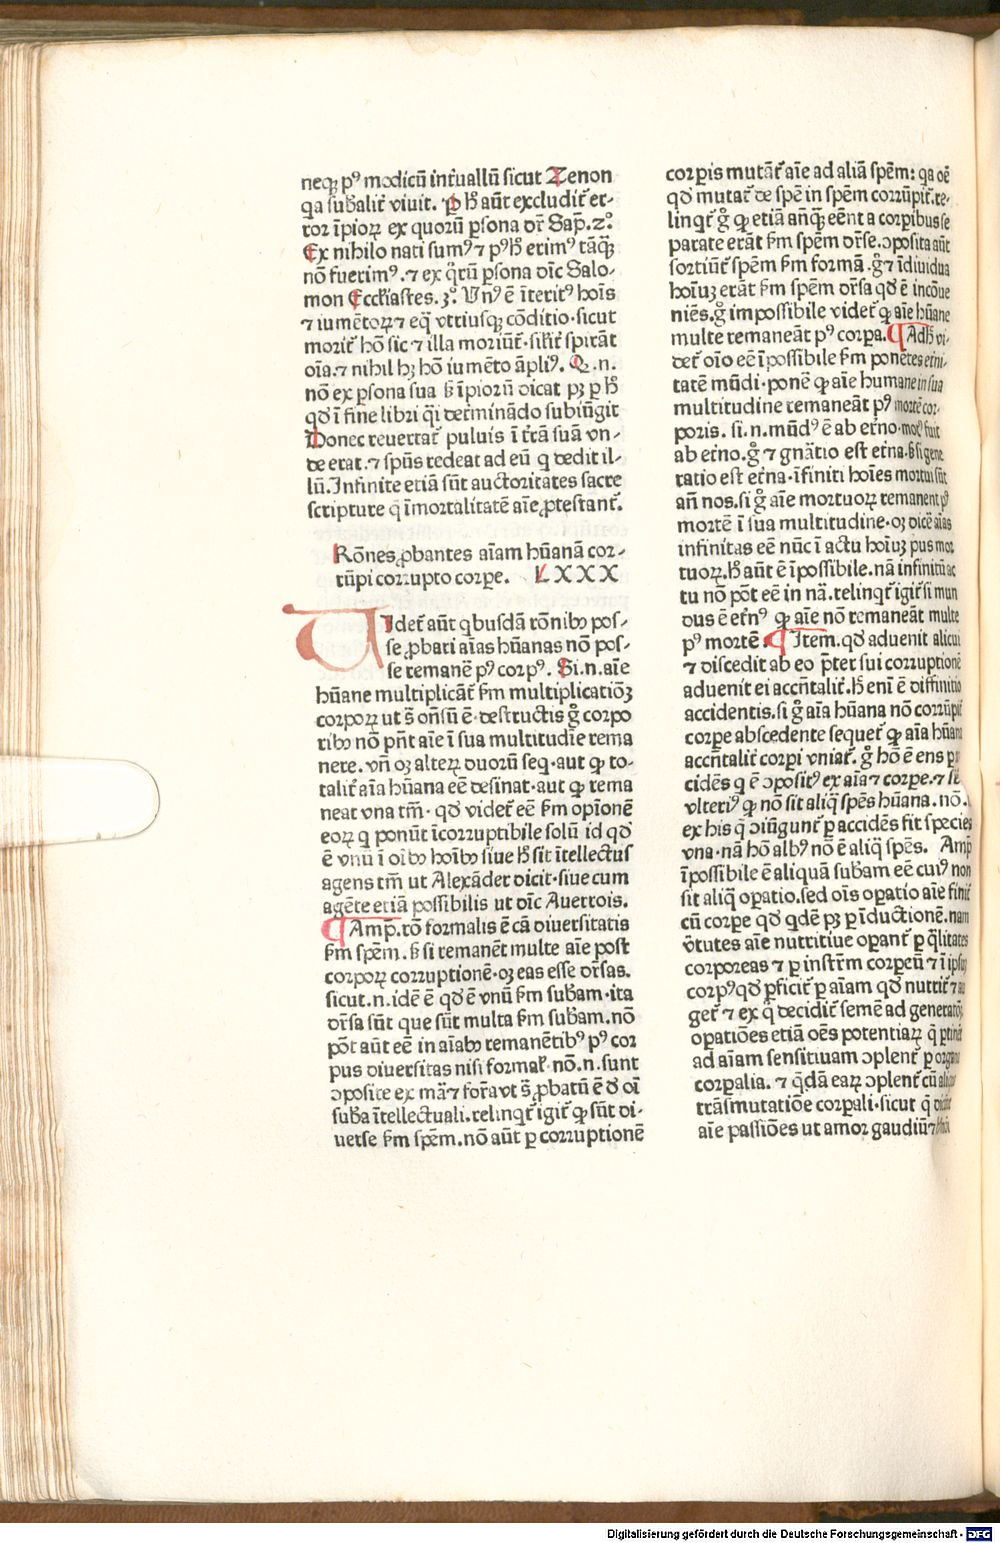 neqꝫ pꝰ modicū int̄uallū sicut Zenon
qa sub̄alit̄ viuit. ꝑ h̄ aūt excludit̄ er-
ror īpioꝝ ex quorū ꝑsona dr̄ Sap̄. 2ᵒ.
Ex nihilo nati sumꝰ ⁊ pꝰ h̄ erimꝰ tāqꝫ̄
nō fuerimꝰ. ⁊ ex q̄rū ꝑsona dīc Salo-
mon Eccl̄iastes. 3ᵒ. Vnꝰ ē īteritꝰ hoīs
⁊ iumētoꝝ ⁊ eq̄ vtriusqꝫ cōditio. sicut
morit̄ hō sic ⁊ illa moriūt̄. sil̄it̄ spirāt
oīa. ⁊ nihil hꝫ hō iumēto āpliꝰ. Q. n.
nō ex ꝑsona sua ß īpiorū dicat pꝫ ꝑ h̄
qd̄ ī fine libri q̄i det̄minādo subiūgit
Donec reuertat̄ puluis ī t̄rā suā vn-
de erat. ⁊ sp̄us redeat ad eū q dedit il-
lū. Infinite etiā sūt auctoritates sacre
scripture q̄ īmortalitatē aīe ꝓtestant̄.
Rōnes ꝓbantes aīam hūanā cor-
rūpi corrupto corpe. LXXX
Videt̄ aūt qbusdā rōnibꝰ pos-
se ꝓbari aīas hūanas nō pos-
se remanē pꝰ corpꝰ. Si. n. aīe
hūane multiplicāt̄ ẜm multiplicatiōꝫ
corpoꝝ ut s̄ on̄sū ē. destructis g̊ corpo
ribꝰ nō pn̄t aīe ī sua multitudīe rema
nere. vn̄ oꝫ alteꝝ duorū seq. aut ꝙ to-
talit̄ aīa hūana eē desinat. aut ꝙ rema
neat vna tm̄. qd̄ videt̄ eē ẜm opīonē
eoꝝ q ponūt īcorruptibile solū id qd̄
ē vnū ī oībꝰ hoībꝰ siue h̄ sit ītellectus
agens tm̄ ut Alexāder dicit. siue cum
agēte etiā possibilis ut dīc Auerrois.
¶ Amp̄. rō formalis ē cā diuersitatis
ẜm spēm. ß si remanēt multe aīe post
corpoꝝ corruptionē. oꝫ eas esse dr̄sas.
sicut. n. idē ē qd̄ ē vnū ẜm sub̄am. ita
dr̄sa sūt que sūt multa ẜm sub̄am. nō
pōt aūt eē in aīabꝰ remanētibꝰ pꝰ cor
pus diuersitas nisi formal̄. nō. n. sunt
ↄposite ex mā ⁊ for̄a vt s̄ ꝓbatū ē d̄ oī
sub̄a ītellectuali. relinqt̄ igit̄ ꝙ sūt di-
uerse ẜm spēm. nō aūt ꝑ corruptionē
corpis mutāt̄ aīe ad aliā spēm: qa oē
qd̄ mutat̄ de spē in spēm corrūpit̄. re-
linqt̄ g̊ ꝙ etiā an̄qꝫ̄ eēnt a corpibus se
parate erāt ẜm spēm dr̄se. ↄposita aūt
sortiūt̄ spēm ẜm formā. g̊ ⁊ īdiuidua
hoīuꝫ erāt ẜm spēm dr̄sa qd̄ ē incōue
niēs. g̊ impossibile videt̄ ꝙ aīe hūane
multe remaneāt pꝰ corpa. ¶ Adh̄ vi-
det̄ oīo eē īpossibile ẜm ponētes et̄ni-
tatē mūdi. ponē ꝙ aīe humane in sua
multitudine remaneāt pꝰ mortē cor-
poris. si. n. mūdꝰ ē ab et̄no. motꝰ fuit
ab et̄no. g̊ ⁊ gnātio est et̄na. ß si gene
ratio est et̄na. īfiniti hoīes mortui sūt
an̄ nos. si g̊ aīe mortuoꝝ remanent pꝰ
mortē ī sua multitudine. oꝫ dicē aīas
infinitas eē nūc ī actu hoīuꝫ pus mor
tuoꝝ. h̄ aūt ē īpossibile. nā infinitū ac
tu nō pōt eē in nā. relinqt̄ igit̄ si mun
dus ē et̄nꝰ ꝙ aīe nō remaneāt multe
pꝰ mortē ¶ Item. qd̄ aduenit alicui
⁊ discedit ab eo p̄ter sui corruptionē
aduenit ei accn̄talit̄. h̄ enī ē diffinitio
accidentis. si g̊ aīa hūana nō corrūpit̄
corpe abscedente sequet̄ ꝙ aīa hūana
accn̄talit̄ corpi vniat̄. g̊ hō ē ens p
cidēs q ē ↄpositꝰ ex aīa ⁊ corpe. ⁊ se
vlteriꝰ ꝙ nō sit aliq̄ spēs hūana. nō.
ex his q̄ ↄiūgunt̄ ꝑ accidēs fit species
vna. nā hō albꝰ nō ē aliq̄ spēs. Amp̄
īpossibile ē aliquā sub̄am eē cuiꝰ non
sit aliq̄ opatio. sed oīs opatio aīe finit̄
cū corpe qd̄ qdē pꝫ ꝑ īductionē. nam
v̄tutes aīe nutritiue oꝑant̄ ꝑ q̄litates
corporeas ⁊ ꝑ instr̄m corpeū ⁊ ī ipsuꝫ
corpꝰ qd̄ ꝑficit̄ ꝑ aīam qd̄ nutrit̄ ⁊ au
get̄ ⁊ ex q̄ decidit̄ semē ad generatōꝫ
opatiōes etiā oēs potentiaꝝ q̄ ꝑtinēt
ad aīam sensitiuam ↄplent̄ ꝑ organa
corpalia. ⁊ q̄dā eaꝝ ↄplent̄ cū aliqua
trāsmutatiōe corpali. sicut q̄ dicūt̄
aīe passiōes ut amor gaudiū ⁊
Digitalisierung gefördert durch die Deutsche Forschungsgemeinschaft - DFG